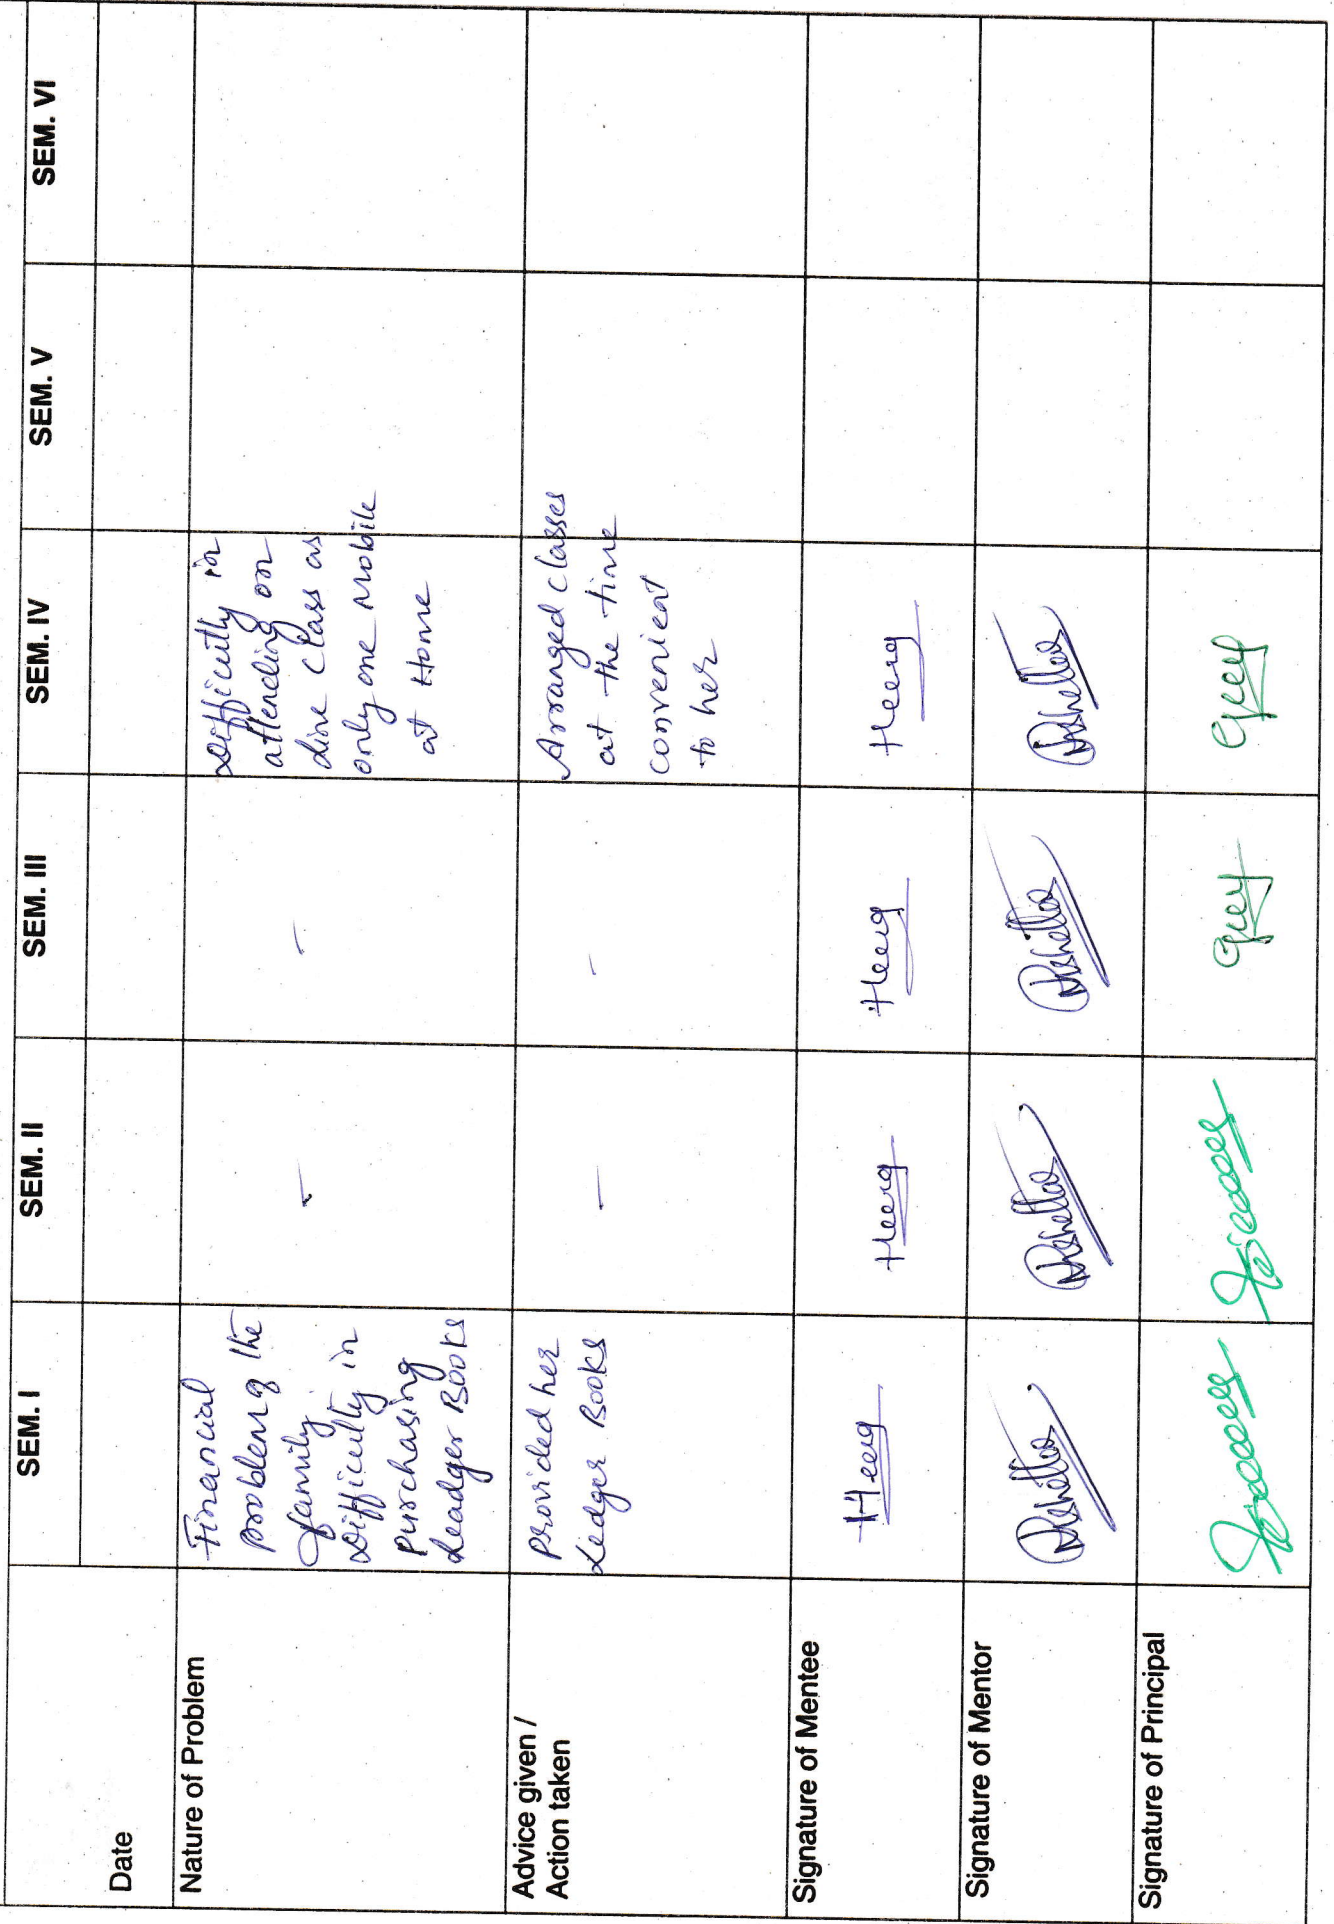 SEM. I
SEM. II
SEM. III
SEM. IV
SEM. V
SEM. VI
Date
Nature of Problem
Financial
problem of the
family
Difficulty in
purchasing
Leadger Books
-
-
Difficultly in
attending on
line class as
only one Mobile
at Home
Advice given /
Action taken
Provided her
Ledger Books
-
-
Arranged classes
at the time
convenient
to her
Signature of Mentee
Signature of Mentor
Signature of Principal